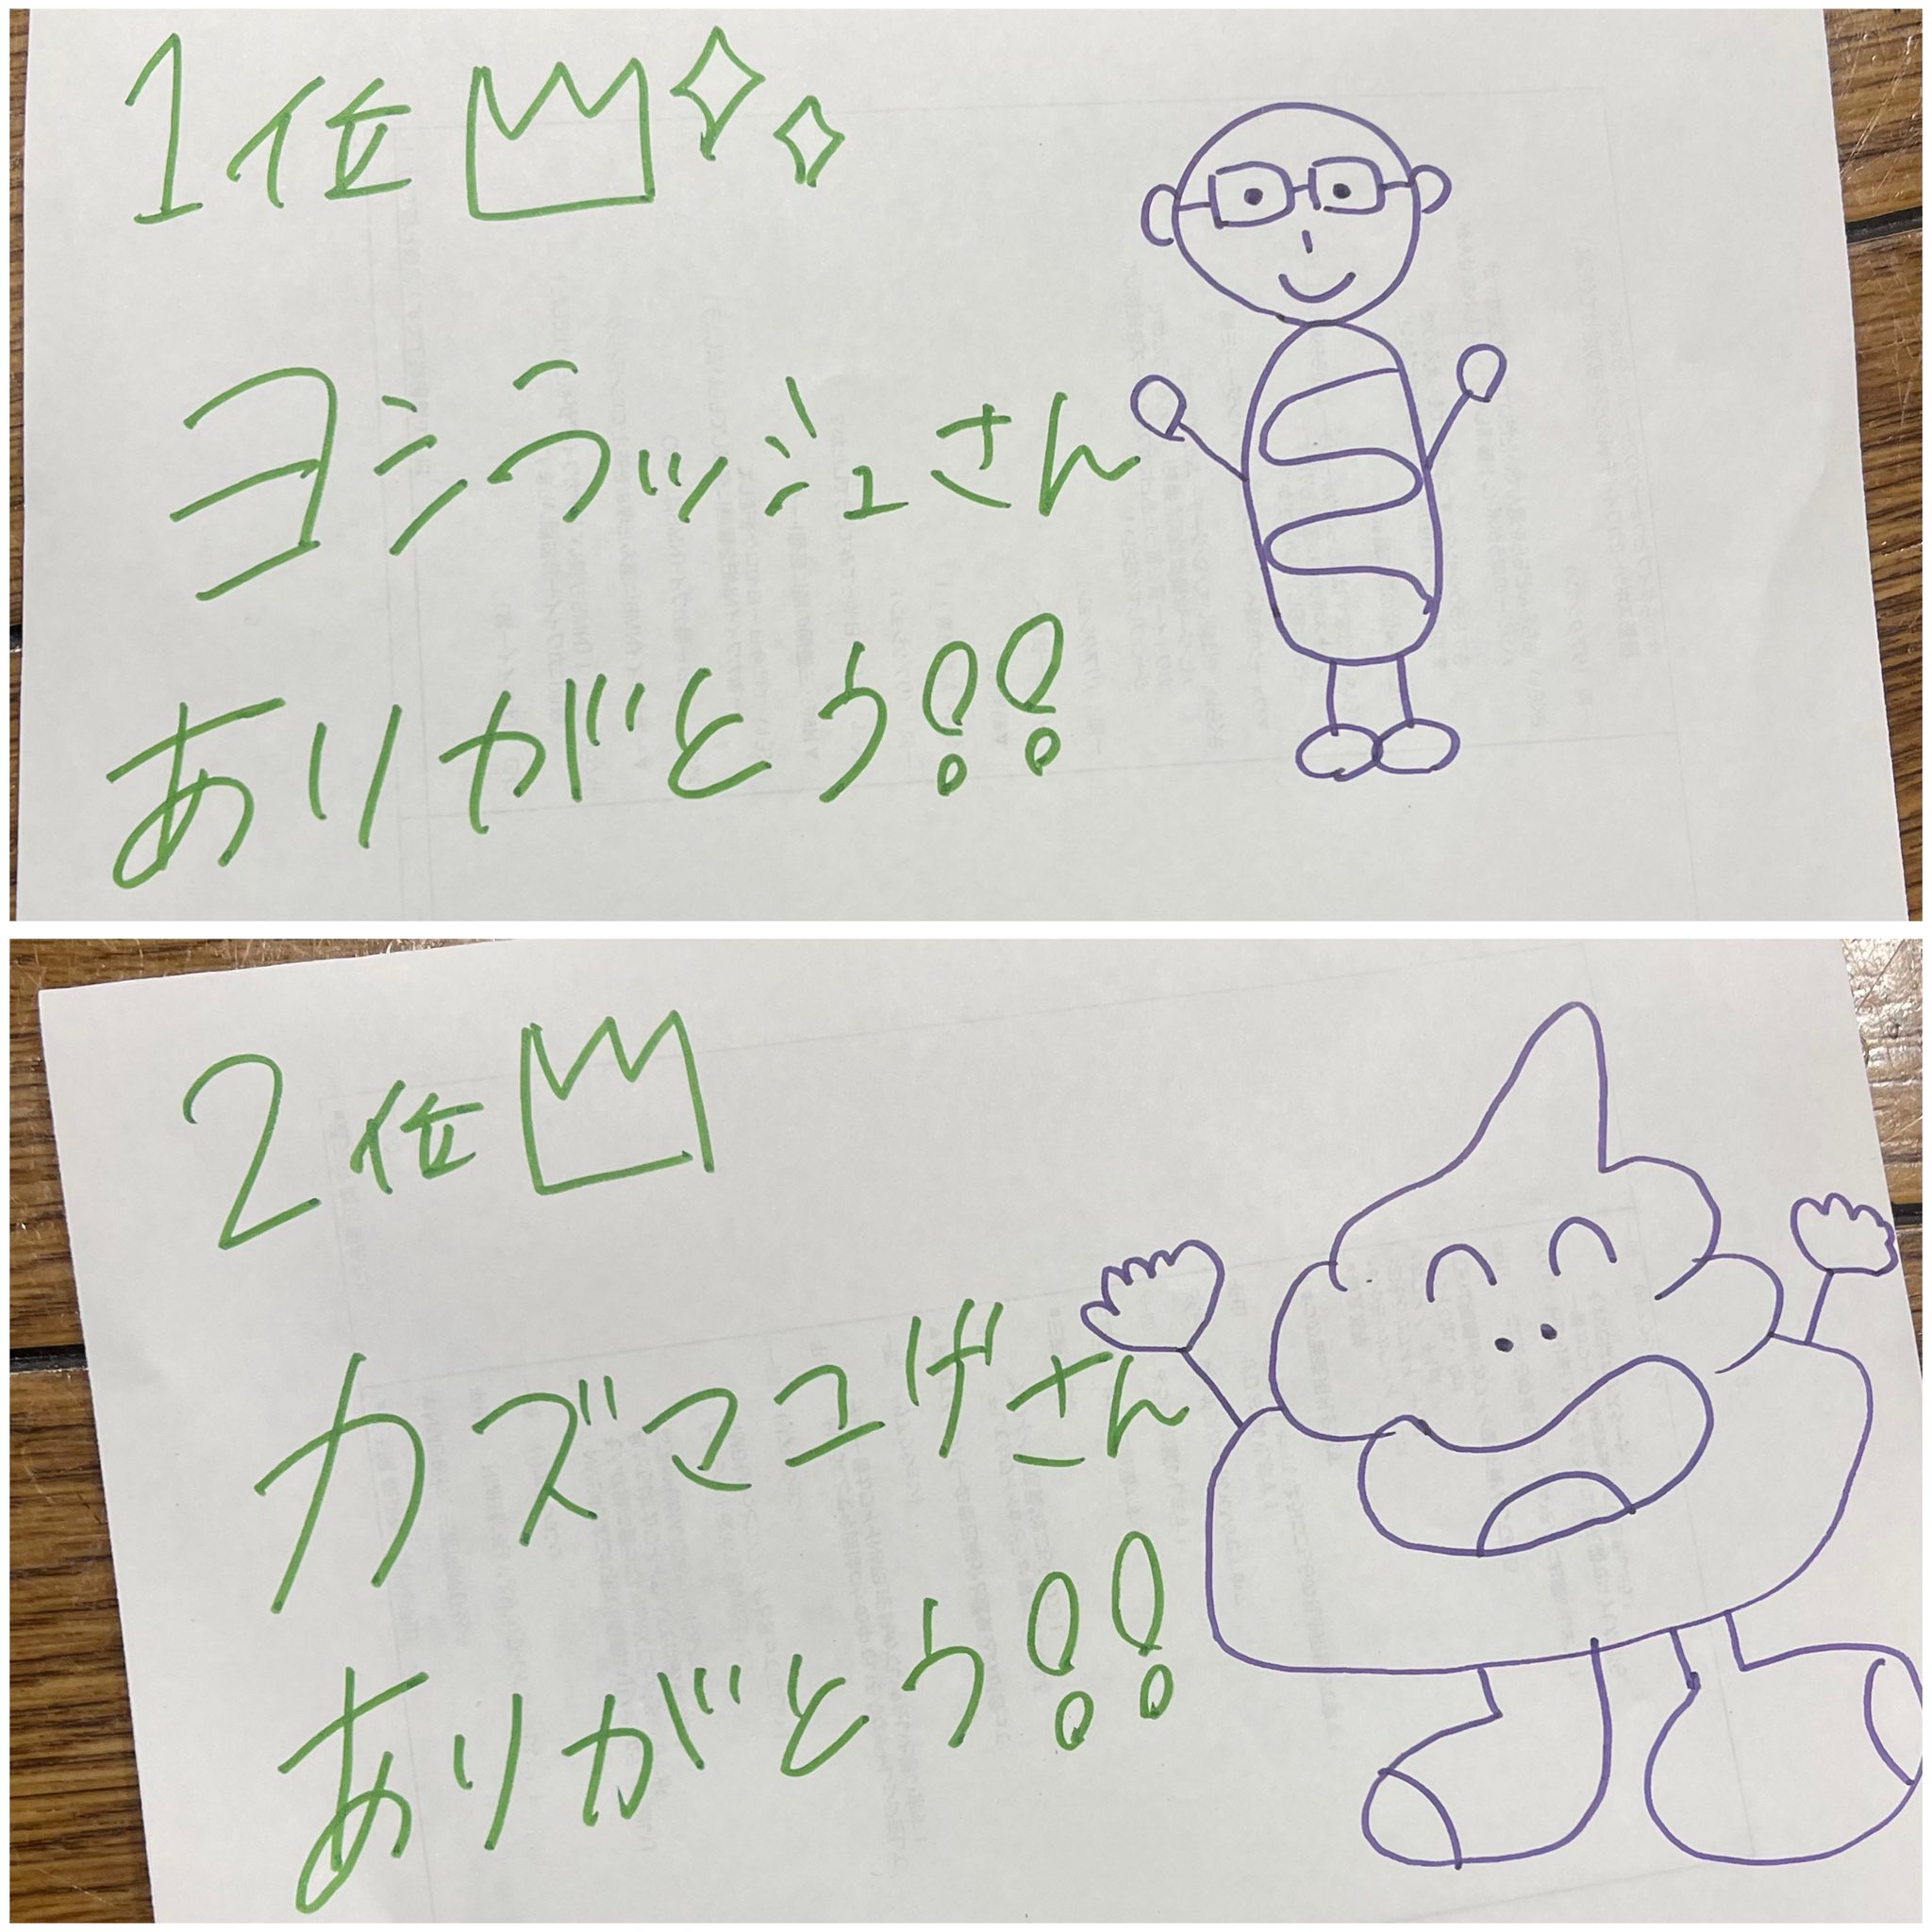 1位
ヨシラッシュさん
ありがとう!!
2位
カズマユゲさん
ありがとう!!